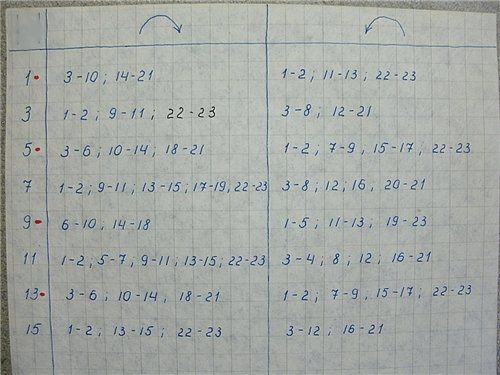 1 3-10; 14-21 1-2; 11-13; 22-23
3 1-2; 9-11; 22-23 3-8; 12-21
5 3-6; 10-14; 18-21 1-2; 7-9, 15-17; 22-23
7 1-2; 9-11; 13-15; 17-19, 22-23 3-8; 12; 16, 20-21
9 6-10; 14-18 1-5; 11-13; 19-23
11 1-2; 5-7; 9-11; 13-15; 22-23 3-4; 8; 12; 16-21
13 3-6; 10-14; 18-21 1-2; 7-9, 15-17; 22-23
15 1-2; 13-15; 22-23 3-12; 16-21